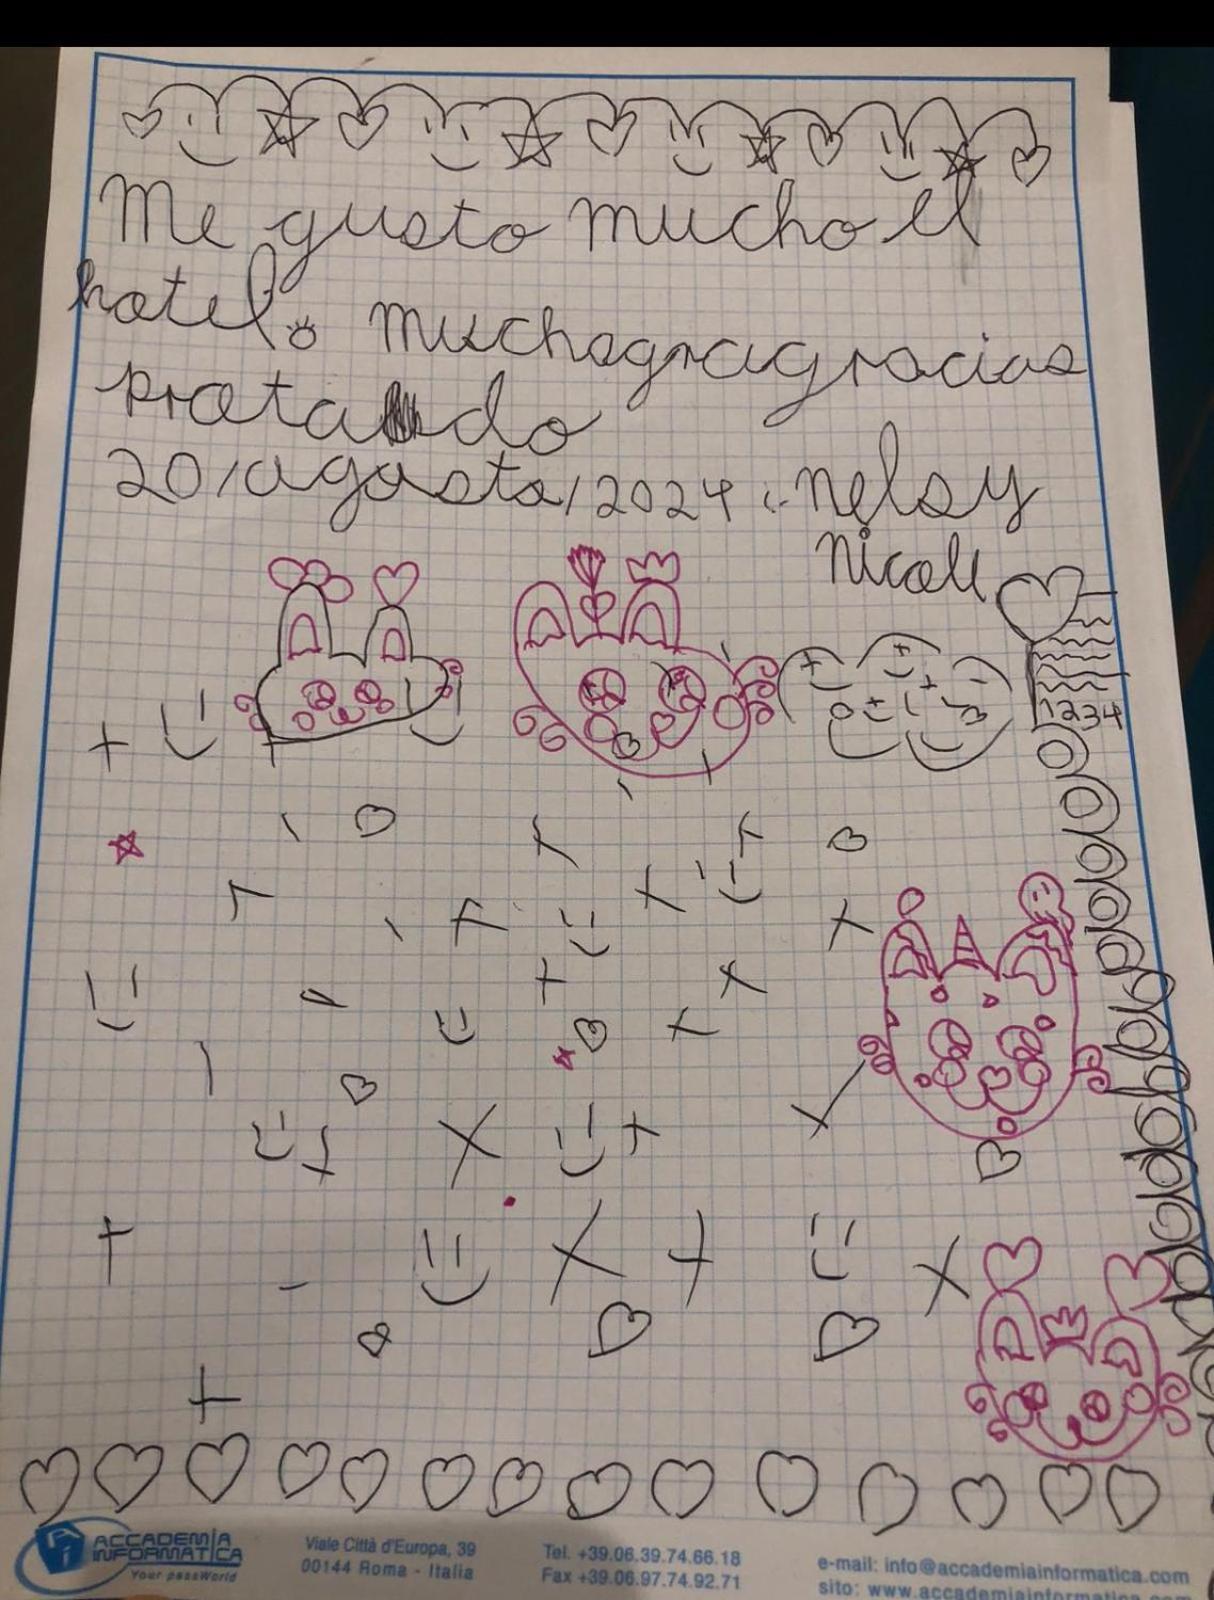 Me gusto mucho el
hotel. muchagragracias
pratando
20/agosto/2024 nelsy
nicoll
1234
ACCADEMIA
INFORMATICA
Your passWorld
Viale Città d'Europa, 39
00144 Roma - Italia
Tel. +39.06.39.74.66.18
Fax +39.06.97.74.92.71
e-mail: info@accademiainformatica.com
sito: www.accademiainformatica.com